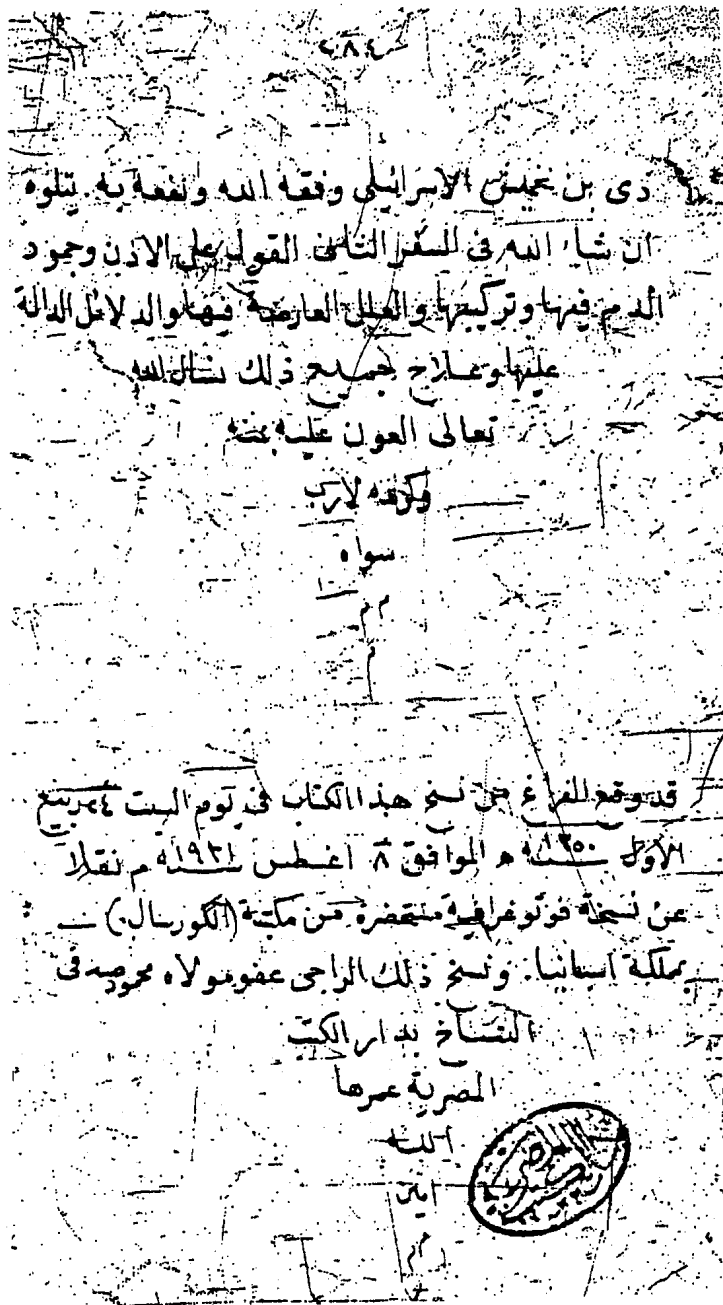 ٢٨٤
دى بن خميس الاسرائيلى وفقه الله ونفعه به. يتلوه
ان شاء الله فى السفر الثانى القول على الاذن وجمود
الدم فيها وتركيبها والعلل العارضة فيها والدلائل الدالة
عليها وعلاج جميع ذلك نسأل الله
تعالى العون عليه بمنه
وكرمه لا رب
سواه
م م
م
قد وقع الفراغ من نسخ هذا الكتاب فى يوم السبت ٢٤ ربيع
الأول سنة ١٣٥٠ ه الموافق ٨ اغسطس سنة ١٩٣١ م نقلا
عن نسخة فوتوغرافية مستحضرة من مكتبة (الكوريال)
بمملكة اسبانيا. ونسخ ذلك الراجى عفو مولاه محمود صدقى
النساخ بدار الكتب
المصرية عمرها
الله
امين
م م